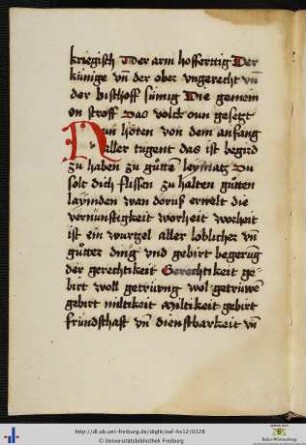 kriegisch Der arm hoffertig Der
künige vn̄ der ober vngerecht vn̄
der bischoff sümig Die gemein
on stroff Das volck oun gesetzt
Nun hören von dem anfang
aller tugent das ist begird
zü haben zü gütten leymatz Du
solt dich flissen zü halten gütten
layinden wan doruß erwelt die
vernünstigkeit worheit
ist ein wurtzel aller loblicher vn̄
gütter ding vnd gebirt begerūg
der gerechtikeit Gerechtikeit ge-
birt woll getrüwng wol getrüwē
gebirt miltikeit Miltikeit gebirt
fründschafft vn̄ dienstbarkeit vn̄
http://dl.ub.uni-freiburg.de/diglit/auf-hs12/0128
© Universitätsbibliothek Freiburg
Baden-Württemberg